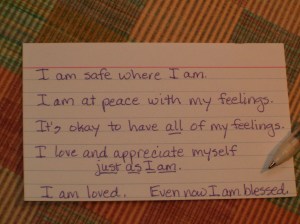 I am safe where I am.
I am at peace with my feelings.
It's okay to have all of my feelings.
I love and appreciate myself
just as I am.
I am loved. Even now I am blessed.